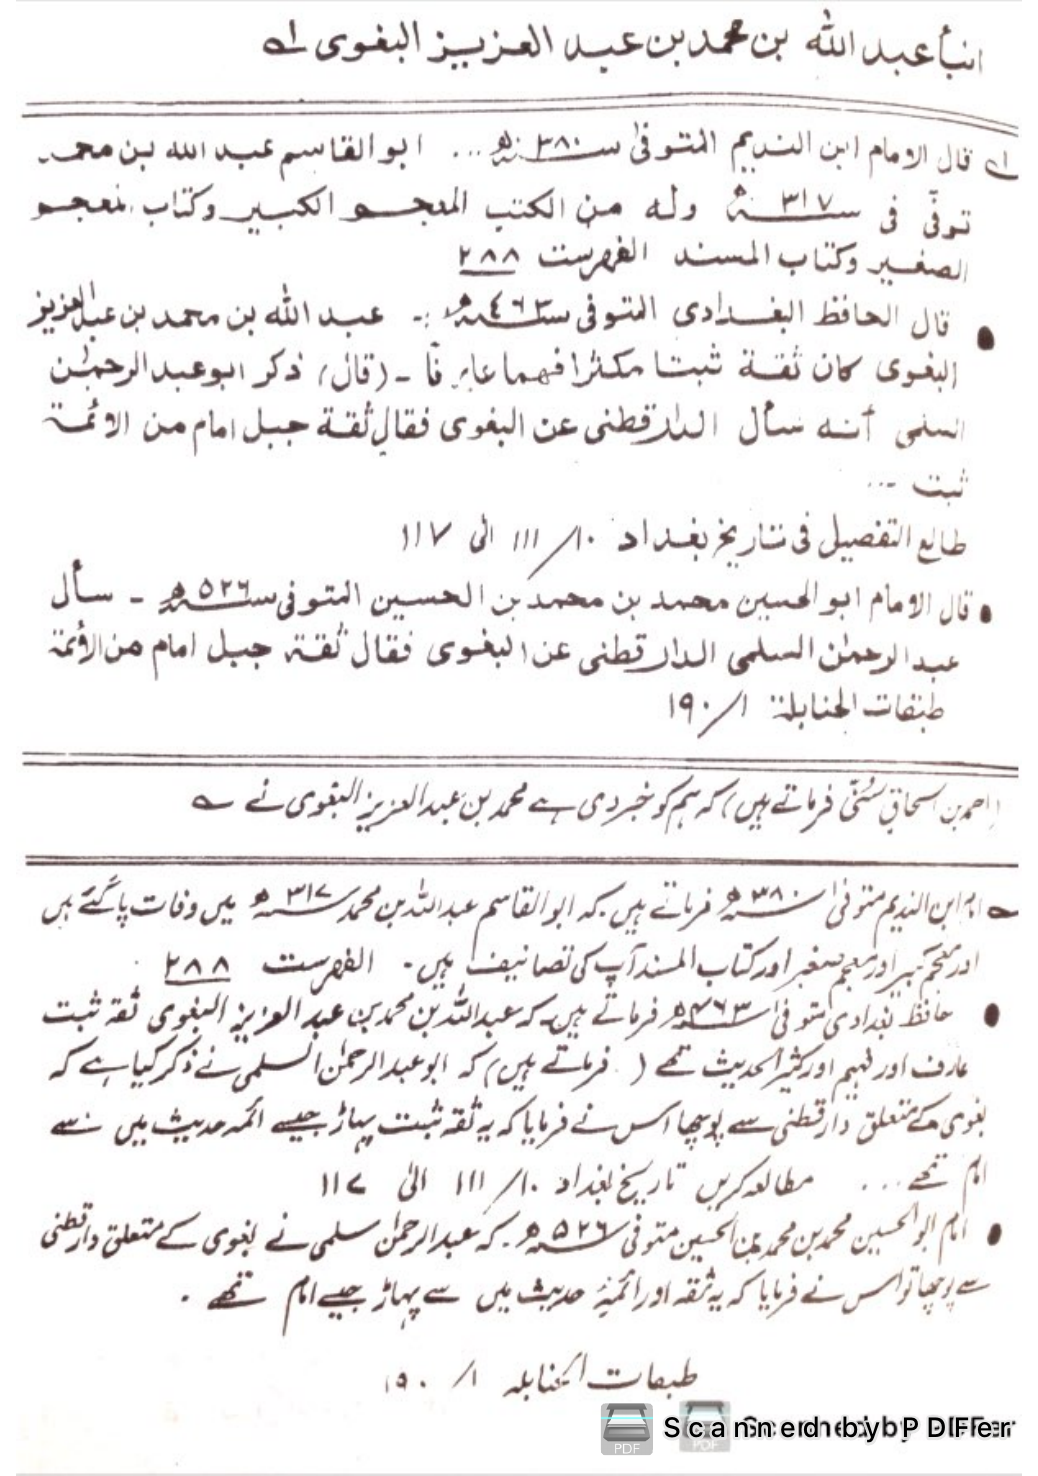 انبأ عبد الله بن محمد بن عبد العزيز البغوى ۱ے
۱ے قال الامام ابن النديم المتوفى سنة ٣٨٠ھ ... ابو القاسم عبد الله بن محمد
توفّى فى سنة ٣١٧ھ وله من الكتب المعجم الكبير وكتاب المعجم
الصغير وكتاب المسند الفهرست ٢٨٨
● قال الحافظ البغدادى المتوفى سنة ٤٦٣ھ :۔ عبد الله بن محمد بن عبد العزيز
البغوى كان ثقة ثبتا مكثرا فهما عارفا ۔ (قال) ذكر ابو عبد الرحمٰن
السلمى أنه سأل الدارقطنى عن البغوى فقال ثقة جبل امام من الائمة
ثبت ...
طالع التفصيل فى تاريخ بغداد ١٠/ ١١١ الى ١١٧
● قال الامام ابو الحسين محمد بن محمد بن الحسين المتوفى سنة ٥٢٦ھ ۔ سأل
عبد الرحمٰن السلمى الدارقطنى عن البغوى فقال ثقة جبل امام من الأئمة
طبقات الحنابلة ١/ ١٩٠
(احمد بن اسحاق سُنّی فرماتے ہیں) کہ ہم کو خبر دی ہے محمد بن عبد العزیز البغوی نے ۱ے
۱ے امام ابن الندیم متوفیٰ سنہ ۳۸۰ھ فرماتے ہیں کہ ابو القاسم عبد اللہ بن محمد سنہ ۳۱۷ھ میں وفات پا گئے ہیں
اور معجم کبیر اور معجم صغیر اور کتاب المسند آپ کی تصانیف ہیں۔ الفہرست ۲۸۸
● حافظ بغدادی متوفیٰ سنہ ۴۶۳ھ فرماتے ہیں کہ عبد اللہ بن محمد بن عبد العزیز البغوی ثقہ ثبت
عارف اور فہیم اور کثیر الحدیث تھے ( فرماتے ہیں) کہ ابو عبد الرحمٰن السلمی نے ذکر کیا ہے کہ
بغوی کے متعلق دارقطنی سے پوچھا اس نے فرمایا کہ یہ ثقہ ثبت پہاڑ جیسے ائمہ حدیث میں سے
امام تھے ... مطالعہ کریں تاریخ بغداد ۱۰/ ۱۱۱ الی ۱۱۷
● امام ابو الحسین محمد بن محمد بن الحسین متوفیٰ سنہ ۵۲۶ھ ۔ کہ عبد الرحمٰن سلمی نے بغوی کے متعلق دارقطنی
سے پوچھا تو اس نے فرمایا کہ یہ ثقہ اور ائمۂ حدیث میں سے پہاڑ جیسے امام تھے ۔
طبقات الحنابلہ ۱/ ۱۹۰
Scanned by PDFfer